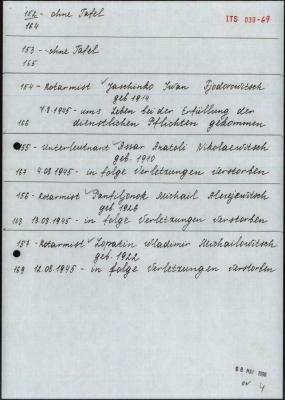 152 - ohne Tafel
164
ITS 030-69
153 - ohne Tafel
165
154 - Rotarmist ✓Jaschinko Iwan Fjodorowitsch
geb 1914
7.8.1945 - ums Leben bei der Erfüllung der
166 dienstlichen Pflichten gekommen
155 - Unterleutnant ✓ Anatoli Nikolaewitsch
geb. 1910
167 4.08.1945 - in folge Verletzungen verstorben
156 - Rotarmist ✓Panfiljonok Michail Alexejewitsch
geb 1926
168 13.08.1945 - in folge Verletzungen verstorben
157 - Rotarmist ✓Lopatin Wladimir Michailowitsch
geb. 1922
169 12.08.1945 - in folge Verletzungen verstorben
08. MAI
4